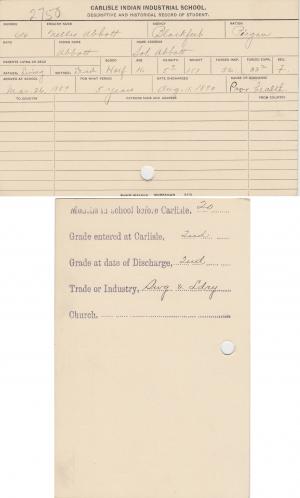 CARLISLE INDIAN INDUSTRIAL SCHOOL.
DESCRIPTIVE AND HISTORICAL RECORD OF STUDENT.
NUMBER ENGLISH NAME AGENCY NATION
2750 Nellie Abbott Blackfeet Piegan
BAND INDIAN NAME HOME ADDRESS
Abbott Sol Abbott
PARENTS LIVING OR DEAD BLOOD AGE HEIGHT WEIGHT FORCED INSP. FORCED EXPR. SEX
FATHER, Living MOTHER, Dead Half 14 F.
ARRIVED AT SCHOOL FOR WHAT PERIOD DATE DISCHARGED CAUSE OF DISCHARGE
Mar. 26, 1889 5 years Aug. 15, 1890 Poor Health
TO COUNTRY PATRONS NAME AND ADDRESS FROM COUNTRY
Months in school before Carlisle, 20
Grade entered at Carlisle, 2nd
Grade at date of Discharge, 2nd
Trade or Industry, Swg & Ldry
Church,